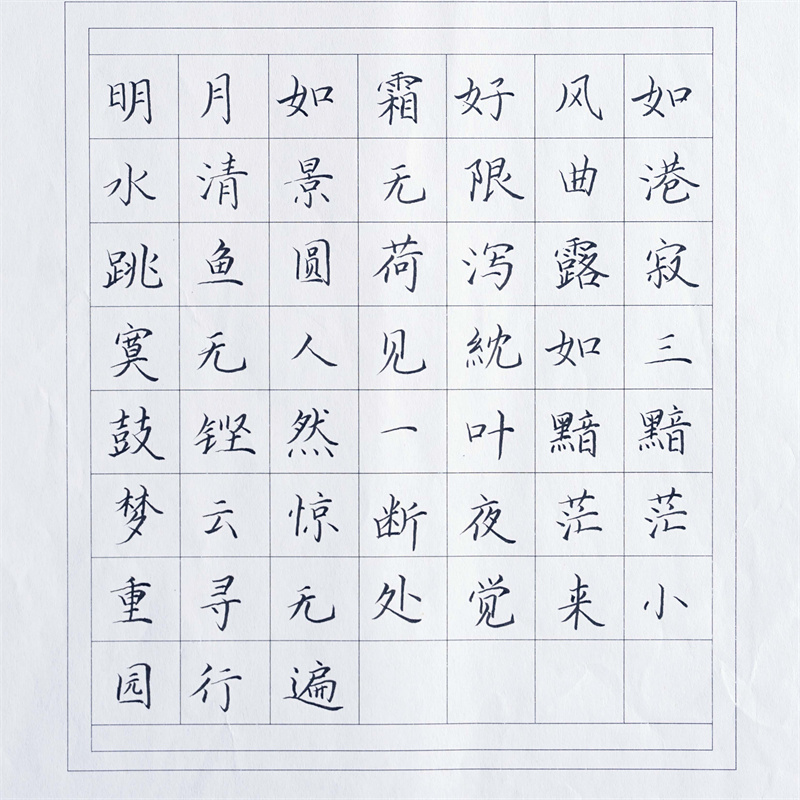 明月如霜好风如
水清景无限曲港
跳鱼圆荷泻露寂
寞无人见紞如三
鼓铿然一叶黯黯
梦云惊断夜茫茫
重寻无处觉来小
园行遍